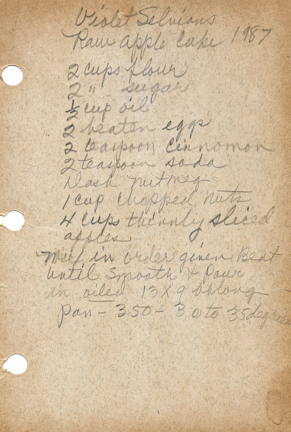 Violet Selvions
Raw apple cake 1987
2 cups flour
2 " sugar
½ cup oil
2 beaten eggs
2 teaspoon cinnomon
2 teaspoon soda
Dash nutmeg
1 cup chopped nuts
4 cups thinnly sliced
apples
Mix in order given Beat
until smooth & Pour
in oiled - 13 x 9 oblong
Pan - 350 - 30 to 35 degrees